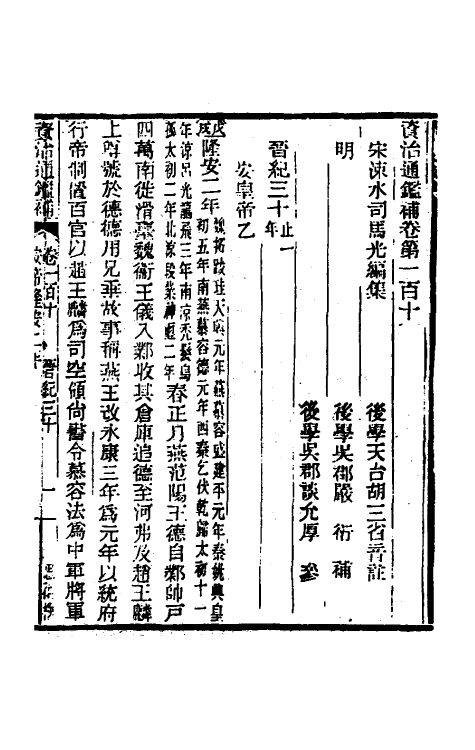 資治通鑑補卷第一百十
宋涑水司馬光編集
後學天台胡三省音註
明
後學吳郡嚴　衍　補
後學吳郡談允厚　參
晉紀三十止一年
安皇帝乙
戊戌隆安二年魏拓跋珪天興元年燕慕容盛建平元年秦姚興皇
初五年南燕慕容德元年西秦乞伏乾歸太初十一
年涼呂光龍飛三年南涼禿髮烏
孤太初二年北涼段業神璽二年春正月燕范陽王德自鄴帥戶
四萬南徙滑臺魏衞王儀入鄴收其倉庫追德至河弗及趙王麟
上尊號於德德用兄垂故事稱燕王改永康三年爲元年以統府
行帝制置百官以趙王麟爲司空領尚書令慕容法爲中軍將軍
資治通鑑補
卷一百十
晉紀三十
一